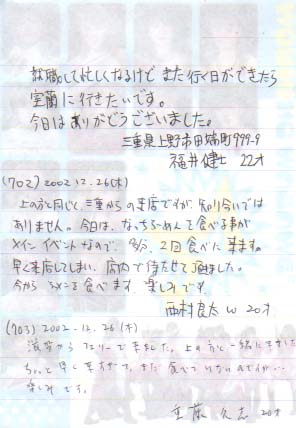 就職して忙しくなるけど また行く日ができたら
室蘭に行きたいです。
今日は ありがとうございました。
三重県上野市田端町999-9
福井健士 22才
(702) 2002.12.26(木)
上の方と同じく、三重からの来店ですが、知り合いでは
ありません。今日は、なっちらーめんを食べる事が
メインイベントなので、多分、2回食べに来ます。
早く来店してしまい、店内で待たせて頂きました。
今から ラーメンを食べます、楽しみです。
西村良太 20才
(703) 2002.12.26(木)
からフェリーで来ました。上の方と一緒に来ました
ちょっと早く来すぎて、まだ食べていないのですが…
楽しみです。
久志 20才